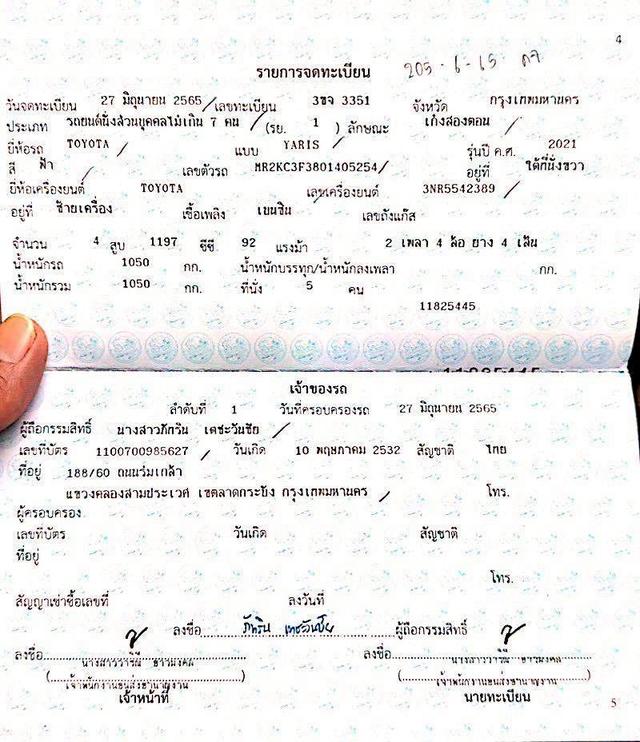 4
รายการจดทะเบียน 205-6-15
วันจดทะเบียน 27 มิถุนายน 2565 เลขทะเบียน 3ขจ 3351 จังหวัด กรุงเทพมหานคร
ประเภท รถยนต์นั่งส่วนบุคคลไม่เกิน 7 คน (รย. 1 ) ลักษณะ เก๋งสองตอน
ยี่ห้อรถ TOYOTA แบบ YARIS รุ่นปี ค.ศ. 2021
สี ฟ้า เลขตัวรถ MR2KC3F3801405254 อยู่ที่ ใต้ที่นั่งขวา
ยี่ห้อเครื่องยนต์ TOYOTA เลขเครื่องยนต์ 3NR5542389
อยู่ที่ ซ้ายเครื่อง เชื้อเพลิง เบนซิน เลขถังแก๊ส
จำนวน 4 สูบ 1197 ซีซี 92 แรงม้า 2 เพลา 4 ล้อ ยาง 4 เส้น
น้ำหนักรถ 1050 กก. น้ำหนักบรรทุก/น้ำหนักลงเพลา กก.
น้ำหนักรวม 1050 กก. ที่นั่ง 5 คน
11825445
เจ้าของรถ
ลำดับที่ 1 วันที่ครอบครองรถ 27 มิถุนายน 2565
ผู้ถือกรรมสิทธิ์ นางสาวภัทริน เตชะวันชัย
เลขที่บัตร 1100700985627 วันเกิด 10 พฤษภาคม 2532 สัญชาติ ไทย
ที่อยู่ 188/60 ถนนร่มเกล้า
แขวงคลองสามประเวศ เขตลาดกระบัง กรุงเทพมหานคร โทร.
ผู้ครอบครอง
เลขที่บัตร วันเกิด สัญชาติ
ที่อยู่
โทร.
สัญญาเช่าซื้อเลขที่ ลงวันที่
ลงชื่อ ภัทริน เตชะวันชัย ผู้ถือกรรมสิทธิ์
ลงชื่อ ลงชื่อ
เจ้าหน้าที่ นายทะเบียน
5